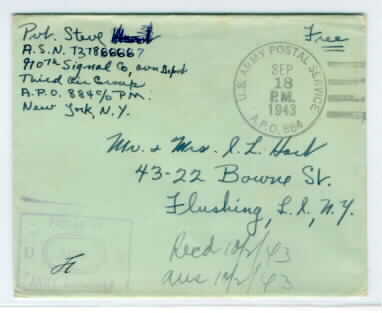 Pvt. Steve
A.S.N. T37866667
910th Signal Co, avn Depot
Third Air
A.P.O. 884 c/o P.M.
New York, N.Y.
Free
U.S. ARMY POSTAL SERVICE
SEP
18
P.M.
1943
A.P.O. 884
Mr. & Mrs. I. L. Hart
43-22 Bowne St.
Flushing, L.I., N.Y.
Recd 10/2/43
ans 10/2/43